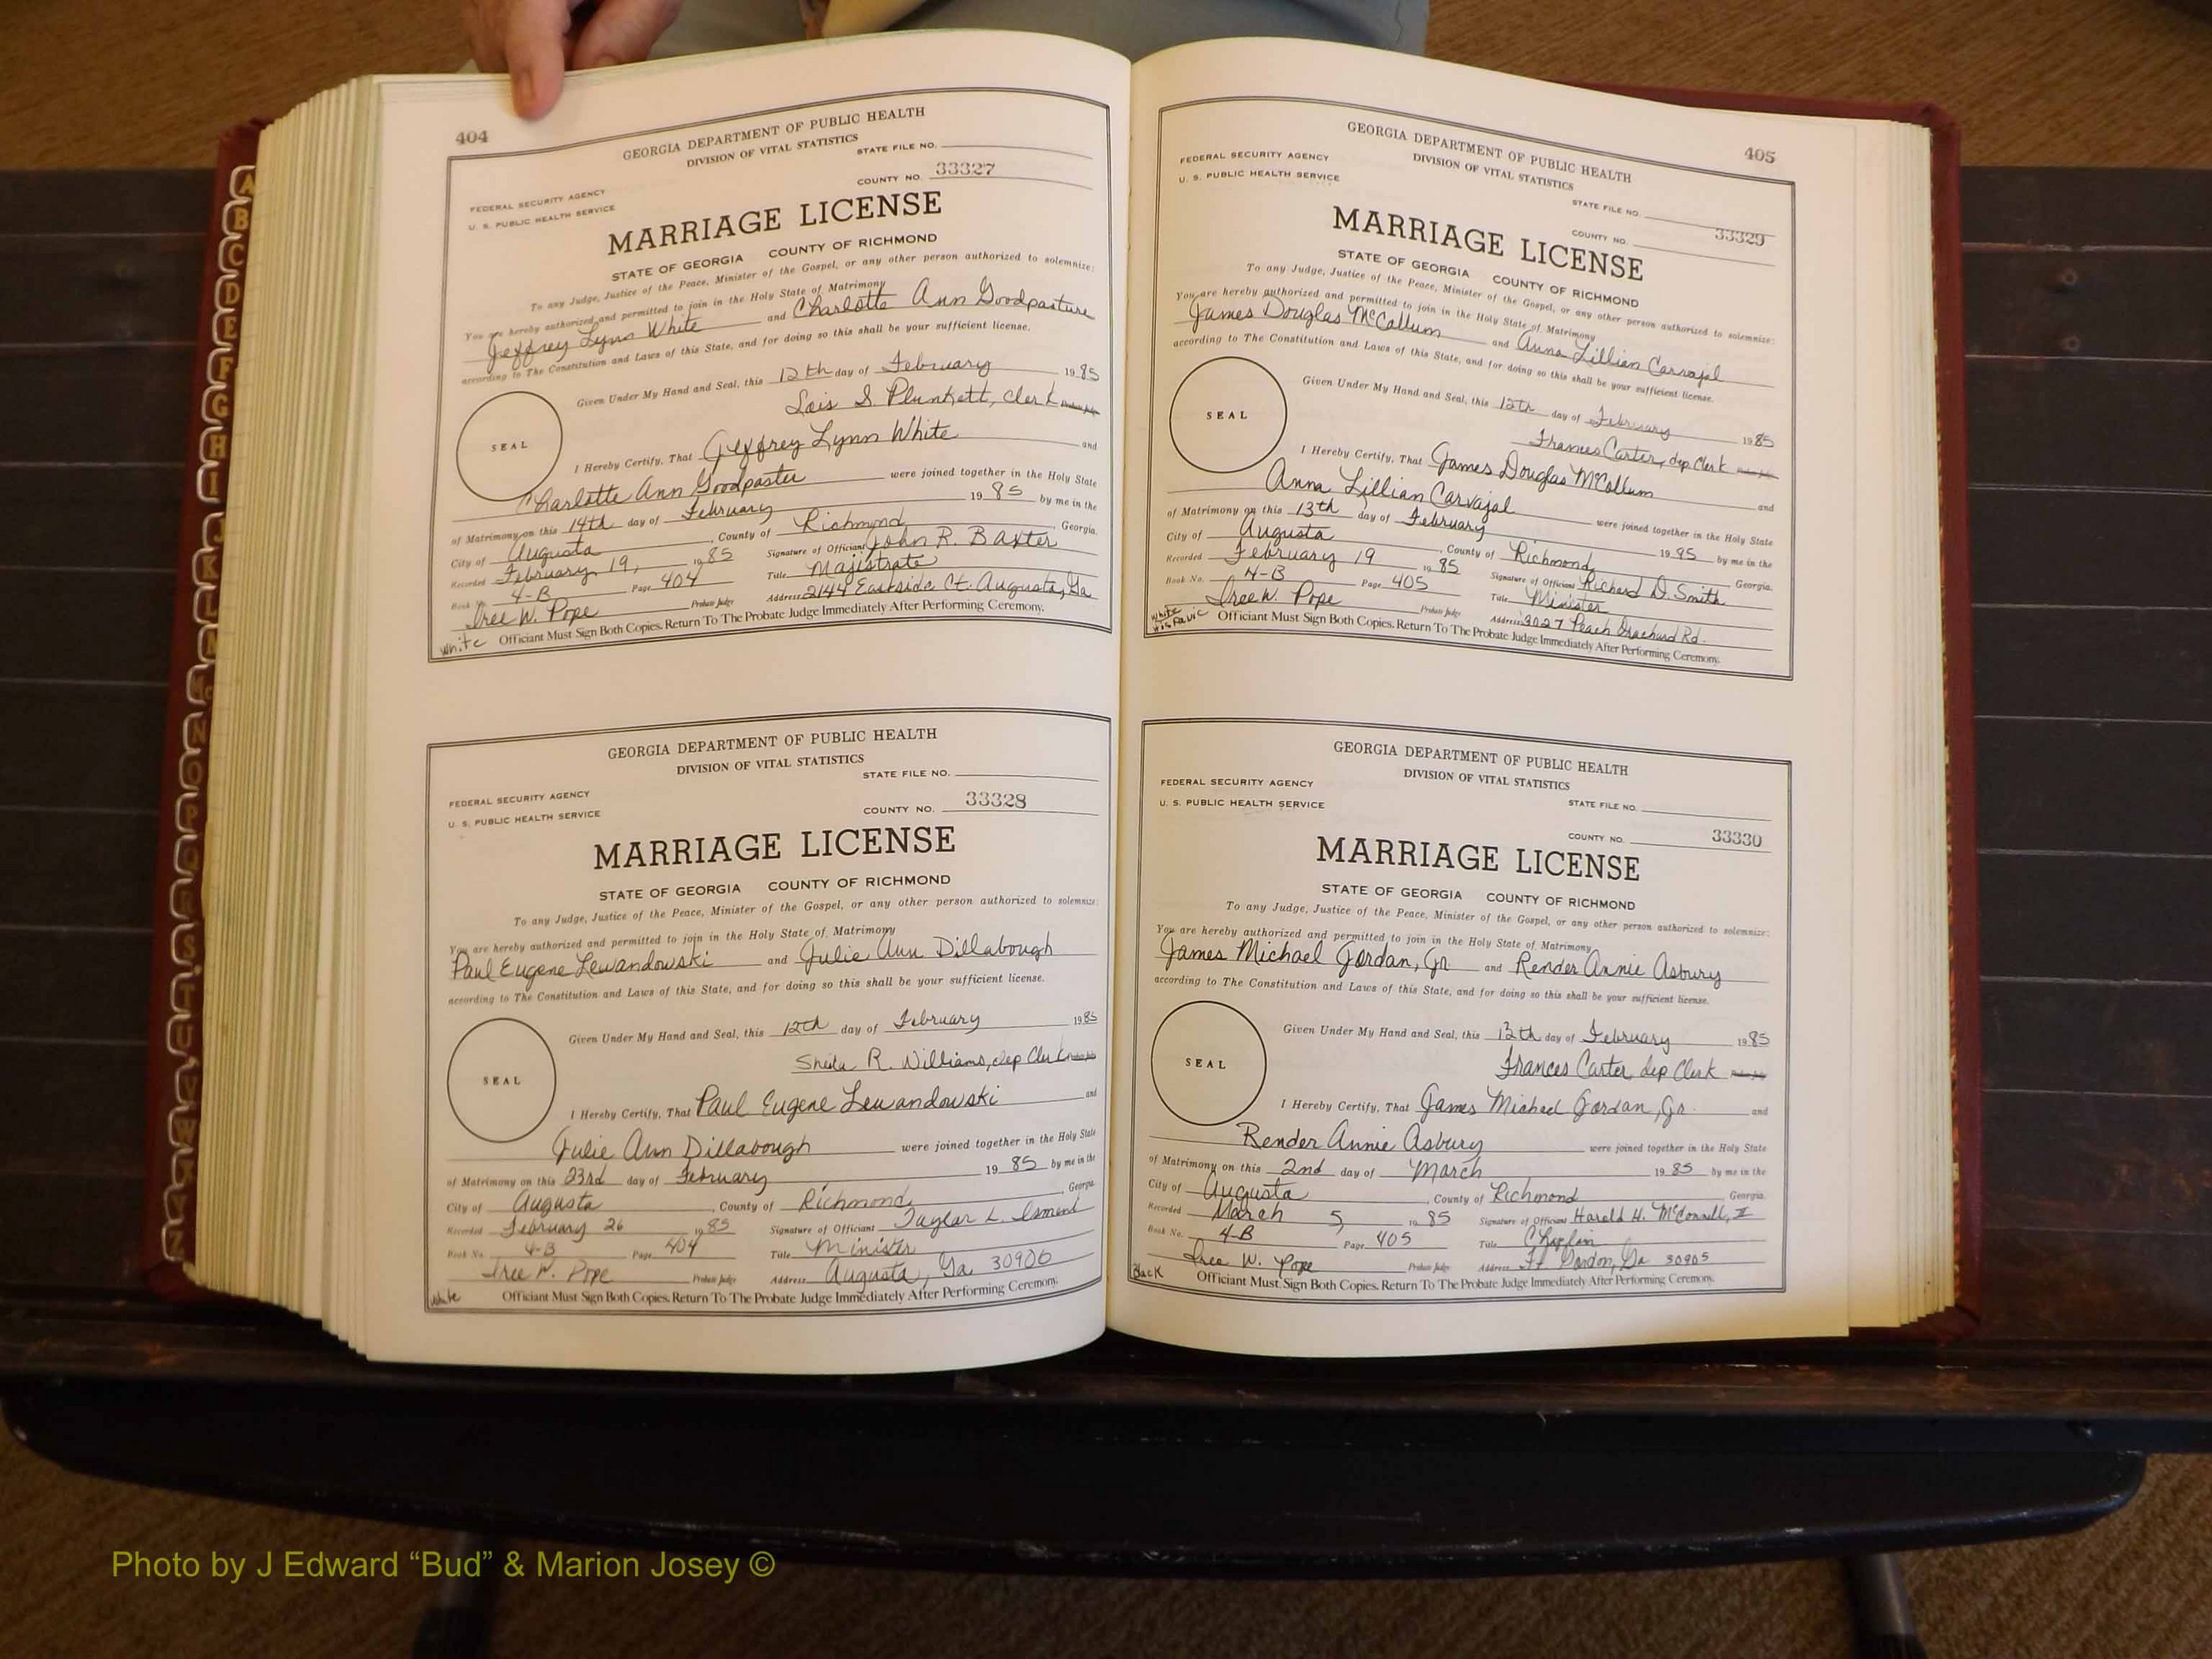 404
GEORGIA DEPARTMENT OF PUBLIC HEALTH
DIVISION OF VITAL STATISTICS
STATE FILE NO.
COUNTY NO. 33327
FEDERAL SECURITY AGENCY
U. S. PUBLIC HEALTH SERVICE
MARRIAGE LICENSE
STATE OF GEORGIA COUNTY OF RICHMOND
To any Judge, Justice of the Peace, Minister of the Gospel, or any other person authorized to solemnize:
You are hereby authorized and permitted to join in the Holy State of Matrimony
Jeffrey Lynn White and Charlotte Ann Goodpasture
according to The Constitution and Laws of this State, and for doing so this shall be your sufficient license.
Given Under My Hand and Seal, this 12th day of February 1985
Lois S. Plunkett, Clerk Probate Judge
SEAL
I Hereby Certify, That Jeffrey Lynn White and
Charlotte Ann Goodpaster were joined together in the Holy State
of Matrimony on this 14th day of February 1985 by me in the
City of Augusta, County of Richmond, Georgia.
Recorded February 19, 1985 Signature of Officiant John R. Baxter
Book No. 4-B Page 404 Title Majistrate
Iree W. Pope Probate Judge Address 2144 Eastside Ct. Augusta, Ga
White Officiant Must Sign Both Copies. Return To The Probate Judge Immediately After Performing Ceremony.
GEORGIA DEPARTMENT OF PUBLIC HEALTH
DIVISION OF VITAL STATISTICS
STATE FILE NO.
FEDERAL SECURITY AGENCY
U. S. PUBLIC HEALTH SERVICE
COUNTY NO. 33328
MARRIAGE LICENSE
STATE OF GEORGIA COUNTY OF RICHMOND
To any Judge, Justice of the Peace, Minister of the Gospel, or any other person authorized to solemnize:
You are hereby authorized and permitted to join in the Holy State of Matrimony
Paul Eugene Lewandowski and Julie Ann Dillabough
according to The Constitution and Laws of this State, and for doing so this shall be your sufficient license.
Given Under My Hand and Seal, this 12th day of February 1985
Sheila R. Williams, dep Clerk Probate Judge
SEAL
I Hereby Certify, That Paul Eugene Lewandowski and
Julie Ann Dillabough were joined together in the Holy State
of Matrimony on this 23rd day of February 1985 by me in the
City of Augusta, County of Richmond, Georgia
Recorded February 26 1985 Signature of Officiant Taylor L.
Book No. 4-B Page 404 Title Minister
Iree W. Pope Probate Judge Address Augusta, Ga 30906
White Officiant Must Sign Both Copies. Return To The Probate Judge Immediately After Performing Ceremony.
405
GEORGIA DEPARTMENT OF PUBLIC HEALTH
DIVISION OF VITAL STATISTICS
FEDERAL SECURITY AGENCY
U. S. PUBLIC HEALTH SERVICE
STATE FILE NO.
COUNTY NO. 33329
MARRIAGE LICENSE
STATE OF GEORGIA COUNTY OF RICHMOND
To any Judge, Justice of the Peace, Minister of the Gospel, or any other person authorized to solemnize:
You are hereby authorized and permitted to join in the Holy State of Matrimony
James Douglas McCollum and Anna Lillian Carvajal
according to The Constitution and Laws of this State, and for doing so this shall be your sufficient license.
Given Under My Hand and Seal, this 12th day of February 1985
Frances Carter, dep Clerk Probate Judge
SEAL
I Hereby Certify, That James Douglas McCollum and
Anna Lillian Carvajal were joined together in the Holy State
of Matrimony on this 13th day of February 1985 by me in the
City of Augusta, County of Richmond, Georgia.
Recorded February 19 1985 Signature of Officiant Richard D. Smith
Book No. 4-B Page 405 Title Minister
Iree W. Pope Probate Judge Address 3027 Peach Orachard Rd.
White
Hispanic Officiant Must Sign Both Copies. Return To The Probate Judge Immediately After Performing Ceremony.
GEORGIA DEPARTMENT OF PUBLIC HEALTH
DIVISION OF VITAL STATISTICS
FEDERAL SECURITY AGENCY
U. S. PUBLIC HEALTH SERVICE
STATE FILE NO.
COUNTY NO. 33330
MARRIAGE LICENSE
STATE OF GEORGIA COUNTY OF RICHMOND
To any Judge, Justice of the Peace, Minister of the Gospel, or any other person authorized to solemnize:
You are hereby authorized and permitted to join in the Holy State of Matrimony
James Michael Gordan, Jr and Render Annie Asbury
according to The Constitution and Laws of this State, and for doing so this shall be your sufficient license.
Given Under My Hand and Seal, this 12th day of February 1985
Frances Carter dep Clerk Probate Judge
SEAL
I Hereby Certify, That James Michael Gordan, Jr. and
Render Annie Asbury were joined together in the Holy State
of Matrimony on this 2nd day of March 1985 by me in the
City of Augusta, County of Richmond Georgia.
Recorded March 5, 1985 Signature of Officiant Harold H. McConnell, II
Book No. 4-B Page 405 Title Chaplin
Iree W. Pope Probate Judge Address Ft Gordon, Ga 30905
Black Officiant Must Sign Both Copies. Return To The Probate Judge Immediately After Performing Ceremony.
Photo by J Edward “Bud” & Marion Josey ©